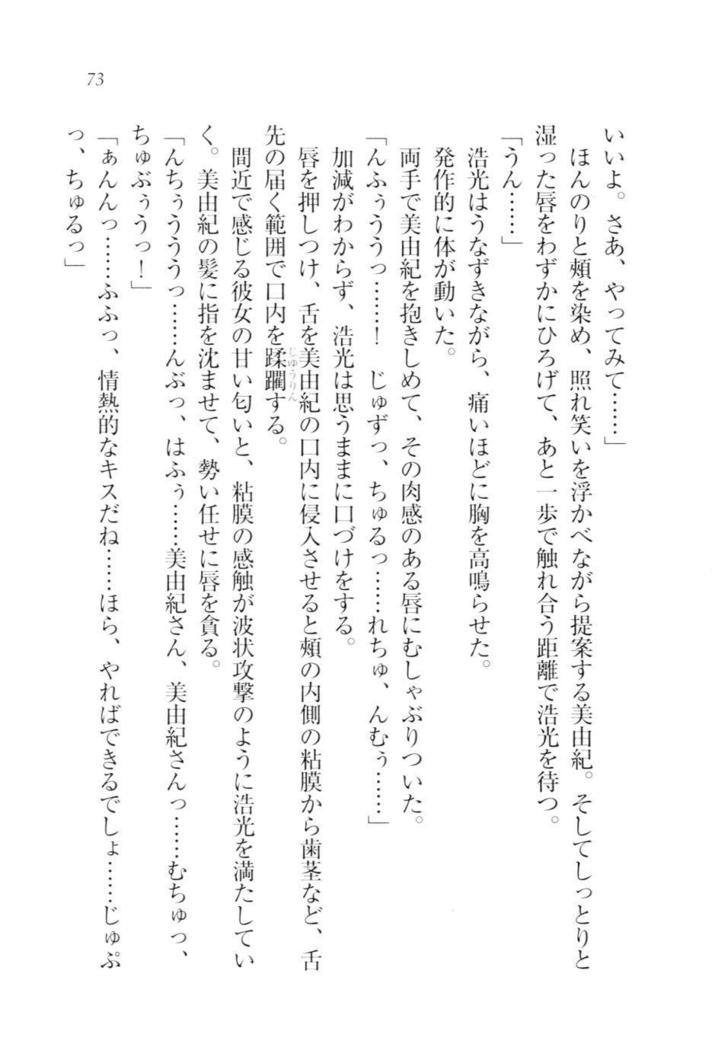 73
いいよ。さあ、やってみて……」
　ほんのりと頰を染め、照れ笑いを浮かべながら提案する美由紀。そしてしっとりと
湿った唇をわずかにひろげて、あと一歩で触れ合う距離で浩光を待つ。
「うん……」
　浩光はうなずきながら、痛いほどに胸を高鳴らせた。
　発作的に体が動いた。
　両手で美由紀を抱きしめて、その肉感のある唇にむしゃぶりついた。
「んふぅううっ……！　じゅずっ、ちゅるっ……れちゅ、んむぅ……」
　加減がわからず、浩光は思うままに口づけをする。
　唇を押しつけ、舌を美由紀の口内に侵入させると頰の内側の粘膜から歯茎など、舌
先の届く範囲で口内を蹂躙する。
じゅうりん
　間近で感じる彼女の甘い匂いと、粘膜の感触が波状攻撃のように浩光を満たしてい
く。美由紀の髪に指を沈ませて、勢い任せに唇を貪る。
「んちぅうううっ……んぶっ、はふぅ……美由紀さん、美由紀さんっ……むちゅっ、
ちゅぶぅうっ！」
「ぁんんっ……ふふっ、情熱的なキスだね……ほら、やればできるでしょ……じゅぷ
っ、ちゅるっ」